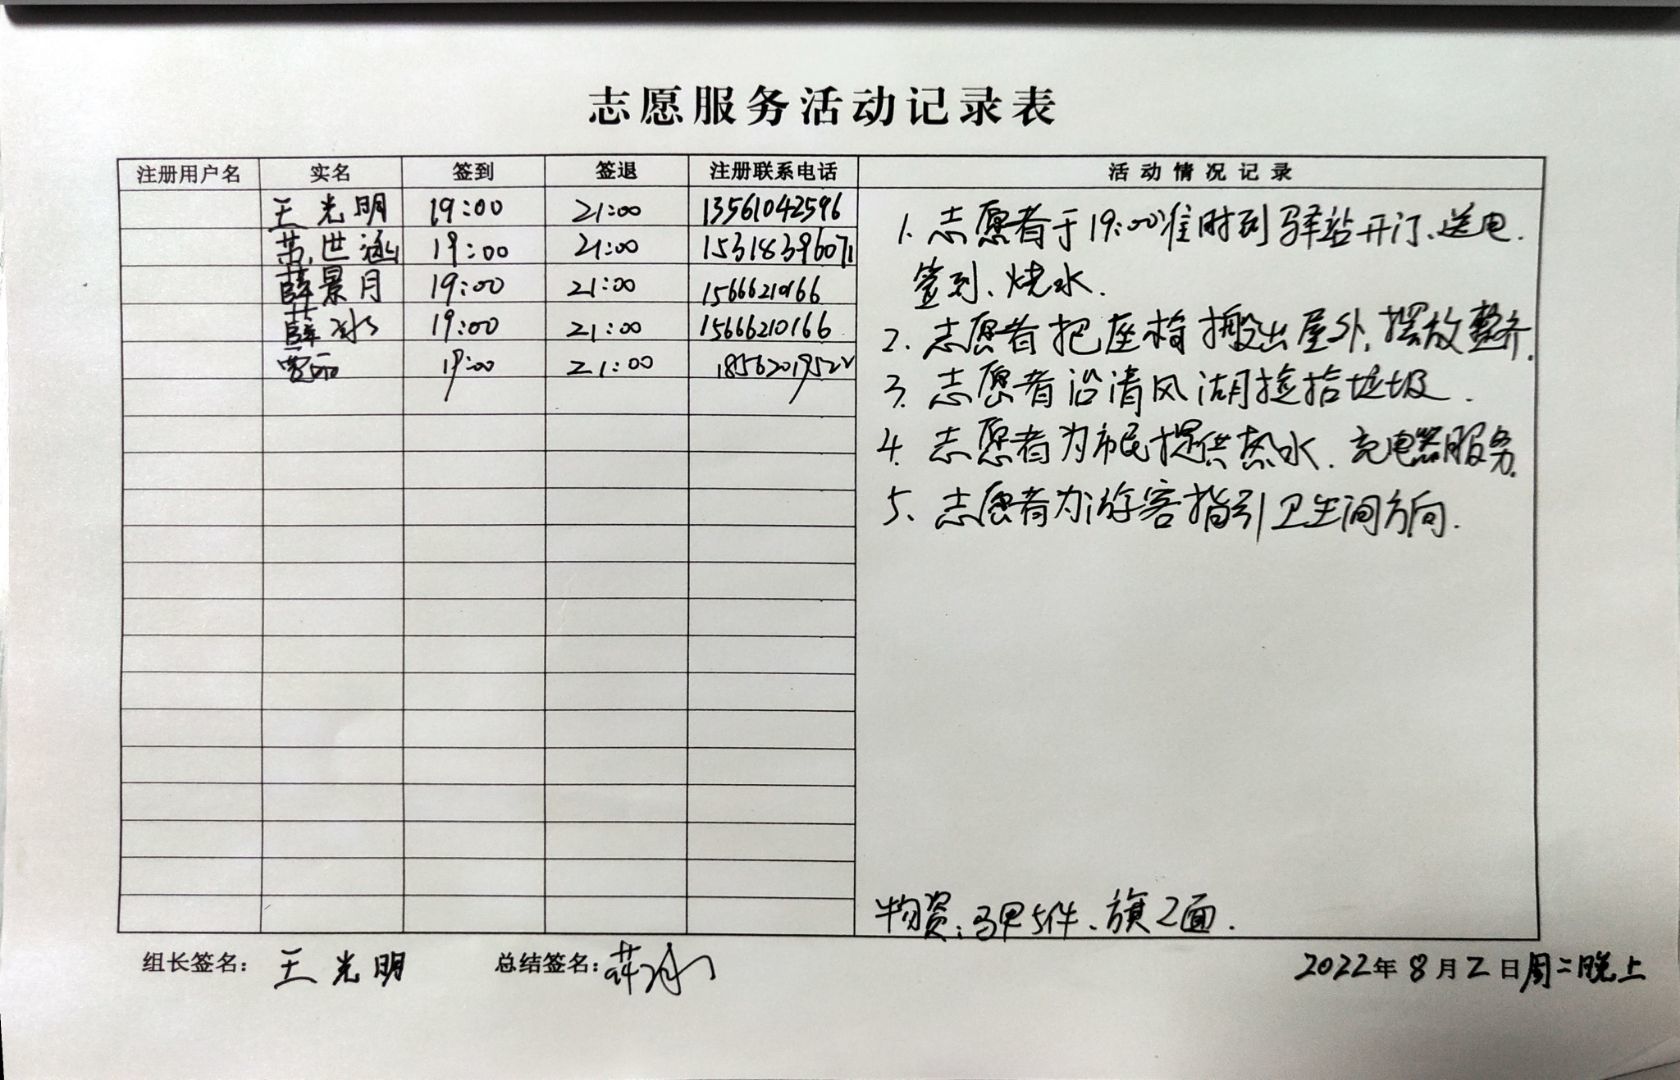 志愿服务活动记录表
注册用户名 实名 签到 签退 注册联系电话 活动情况记录
王光明 19:00 21:00 13561042596
苏世涵 19:00 21:00 15318396071
薛景月 19:00 21:00 15666210166
薛冰 19:00 21:00 15666210166
19:00 21:00 18562019522
1. 志愿者于19:00准时到驿站开门、送电.
签到、烧水.
2. 志愿者把座椅搬出屋外,摆放整齐.
3. 志愿者沿清风湖捡拾垃圾.
4. 志愿者为市民提供热水、充电器服务.
5、志愿者为游客指引卫生间方向.
物资:马甲5件、旗2面.
组长签名: 王光明 总结签名: 薛冰 2022年8月2日周二晚上